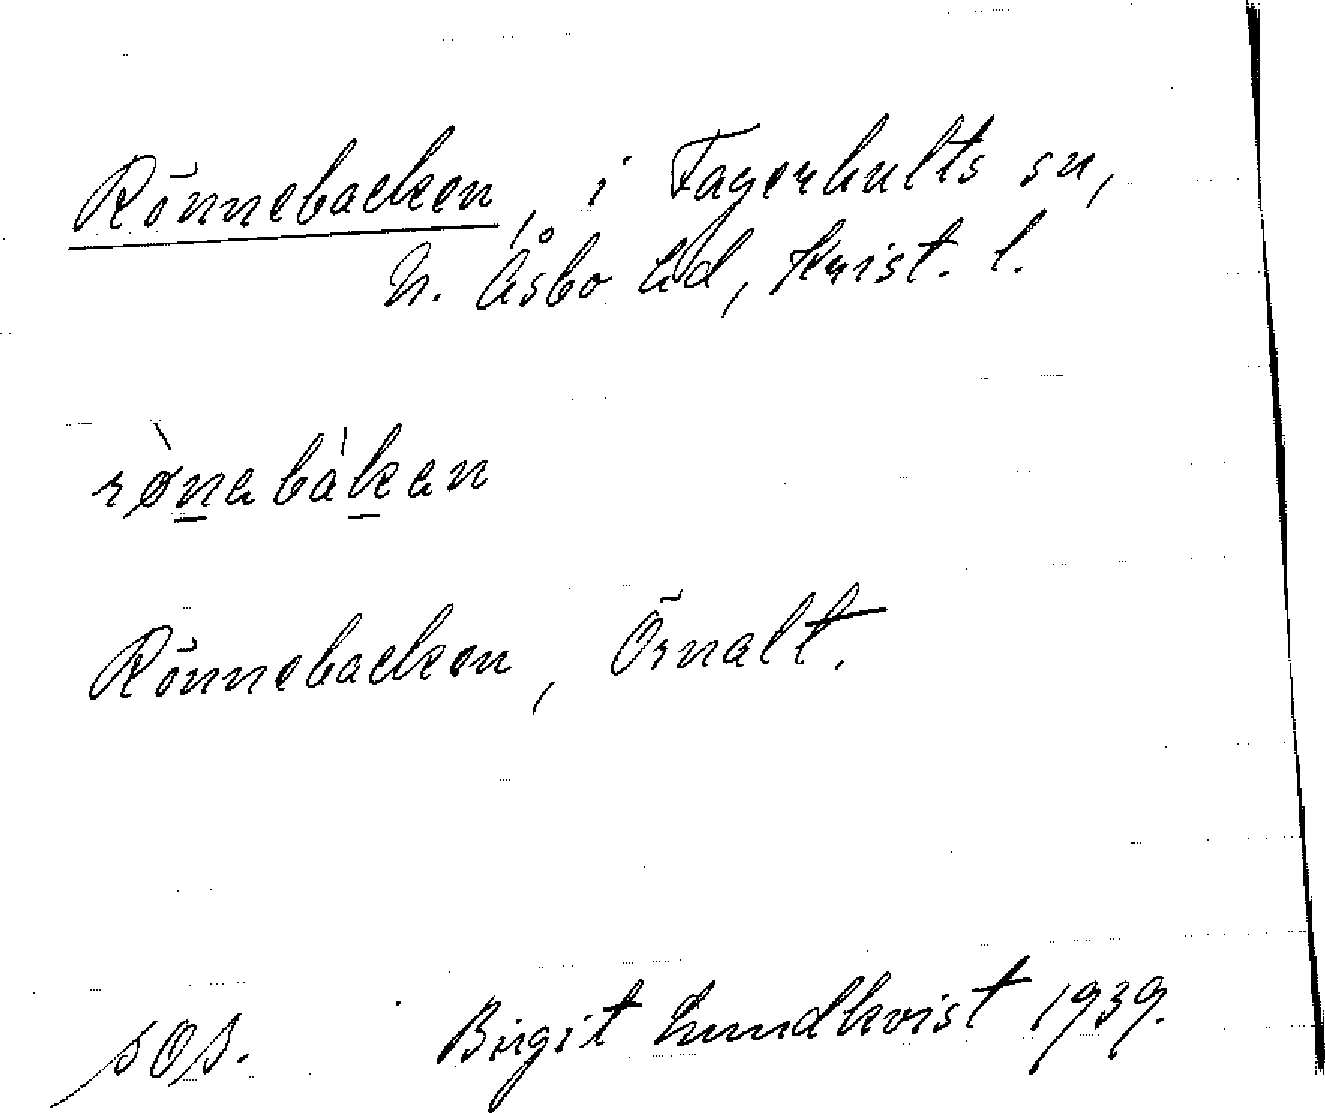 Rönnebacken, i Fagerhults sn,
N. Åsbo hd, Krist. l.
rø̀nabàkan
Rönnebacken, Örnalt.
sOs. Birgit Lundkvist 1939.